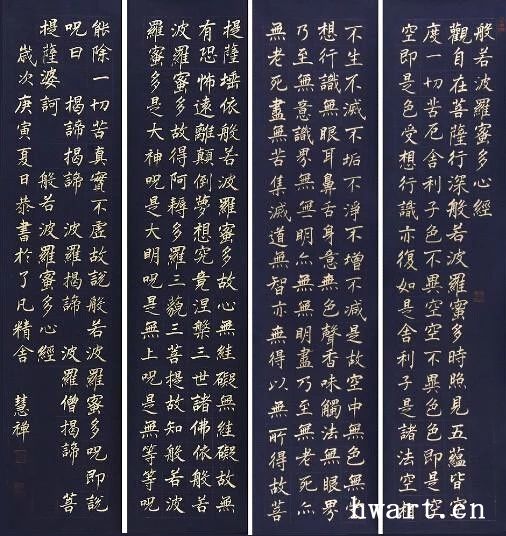 般若波羅蜜多心經
觀自在菩薩行深般若波羅蜜多時照見五蘊皆空
度一切苦厄舍利子色不異空空不異色色即是空
空即是色受想行識亦復如是舍利子是諸法空相
不生不滅不垢不淨不增不減是故空中無色無受
想行識無眼耳鼻舌身意無色聲香味觸法無眼界
乃至無意識界無無明亦無無明盡乃至無老死亦
無老死盡無苦集滅道無智亦無得以無所得故菩
提薩埵依般若波羅蜜多故心無罣礙無罣礙故無
有恐怖遠離顛倒夢想究竟涅槃三世諸佛依般若
波羅蜜多故得阿耨多羅三藐三菩提故知般若波
羅蜜多是大神呪是大明呪是無上呪是無等等呪
能除一切苦真實不虛故說般若波羅蜜多呪即說
呪曰 揭諦揭諦 波羅揭諦 波羅僧揭諦 菩
提薩婆訶 般若波羅蜜多心經
歲次庚寅夏日恭書於了凡精舍 慧禪
hwart.cn